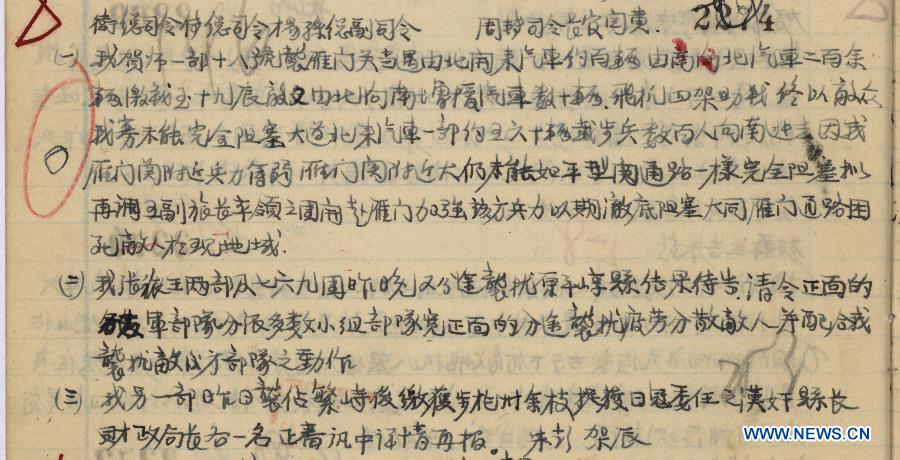 衛總司令傅總司令楊孫總副司令 周 司令長官閻黄
㈠ 我賀师一部十八號襲雁门关当遇由北南来汽車约百輛由南向北汽車二百余
輛激战至十九辰敌又由北向南增援汽車数十輛飛机四架助战终以敌众
我寡未能完全阻塞大道北来汽車一部约五六十輛載步兵数百人向南逃去因我
雁门関附近兵力有弱雁门関附近大 仍未能如平型関通路一樣完全阻塞拟
再调王副旅长率領之團開赴雁门加强該方兵力以期澈底阻塞大同雁门通路困
死敵人於現地域.
㈡ 我張旅王两部及七六九團昨晚又分途襲扰原平崞縣结果待告.請令正面的
友軍部隊分派多数小组部隊完正面的分途襲扰疲劳分散敵人并配合我
襲扰敵後方部隊之動作
㈢ 我另一部昨日襲佔繁峙後缴獲步枪卅余枝捉獲日寇委任之漢奸縣长
財政局长各一名正審讯中详情再报。 朱彭 架辰
WWW.NEWS.CN